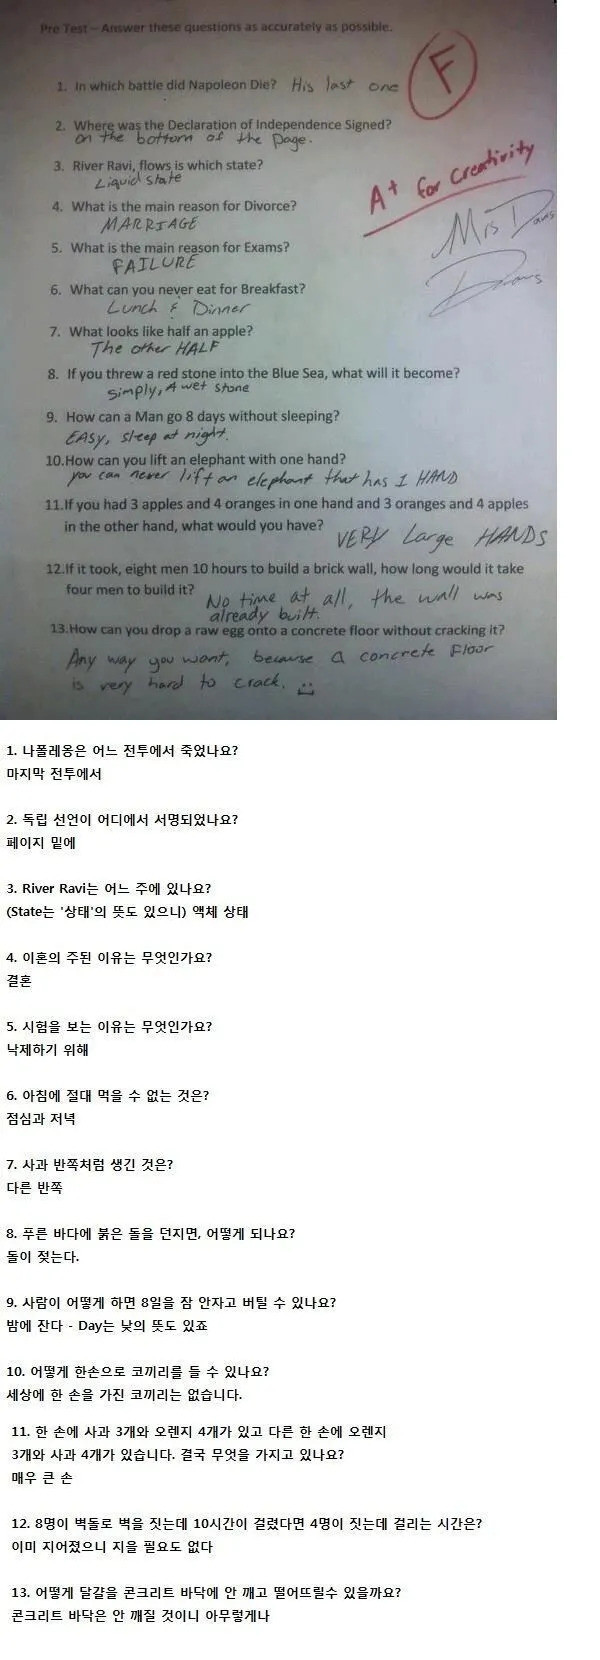 Pre Test – Answer these questions as accurately as possible.
1. In which battle did Napoleon Die? His last one
F
2. Where was the Declaration of Independence Signed?
on the bottom of the page.
3. River Ravi, flows is which state?
Liquid state
A+ for Creativity
4. What is the main reason for Divorce?
MARRIAGE
Mrs Davis
5. What is the main reason for Exams?
FAILURE
6. What can you never eat for Breakfast?
Lunch & Dinner
7. What looks like half an apple?
The other HALF
8. If you threw a red stone into the Blue Sea, what will it become?
simply, A wet stone
9. How can a Man go 8 days without sleeping?
EASY, sleep at night.
10.How can you lift an elephant with one hand?
you can never lift an elephant that has 1 HAND
11.If you had 3 apples and 4 oranges in one hand and 3 oranges and 4 apples
in the other hand, what would you have? VERY Large HANDS
12.If it took, eight men 10 hours to build a brick wall, how long would it take
four men to build it? No time at all, the wall was
already built.
13.How can you drop a raw egg onto a concrete floor without cracking it?
Any way you want, because a concrete floor
is very hard to crack.
1. 나폴레옹은 어느 전투에서 죽었나요?
마지막 전투에서
2. 독립 선언이 어디에서 서명되었나요?
페이지 밑에
3. River Ravi는 어느 주에 있나요?
(State는 '상태'의 뜻도 있으니) 액체 상태
4. 이혼의 주된 이유는 무엇인가요?
결혼
5. 시험을 보는 이유는 무엇인가요?
낙제하기 위해
6. 아침에 절대 먹을 수 없는 것은?
점심과 저녁
7. 사과 반쪽처럼 생긴 것은?
다른 반쪽
8. 푸른 바다에 붉은 돌을 던지면, 어떻게 되나요?
돌이 젖는다.
9. 사람이 어떻게 하면 8일을 잠 안자고 버틸 수 있나요?
밤에 잔다 - Day는 낮의 뜻도 있죠
10. 어떻게 한손으로 코끼리를 들 수 있나요?
세상에 한 손을 가진 코끼리는 없습니다.
11. 한 손에 사과 3개와 오렌지 4개가 있고 다른 한 손에 오렌지
3개와 사과 4개가 있습니다. 결국 무엇을 가지고 있나요?
매우 큰 손
12. 8명이 벽돌로 벽을 짓는데 10시간이 걸렸다면 4명이 짓는데 걸리는 시간은?
이미 지어졌으니 지을 필요도 없다
13. 어떻게 달걀을 콘크리트 바닥에 안 깨고 떨어뜨릴수 있을까요?
콘크리트 바닥은 안 깨질 것이니 아무렇게나